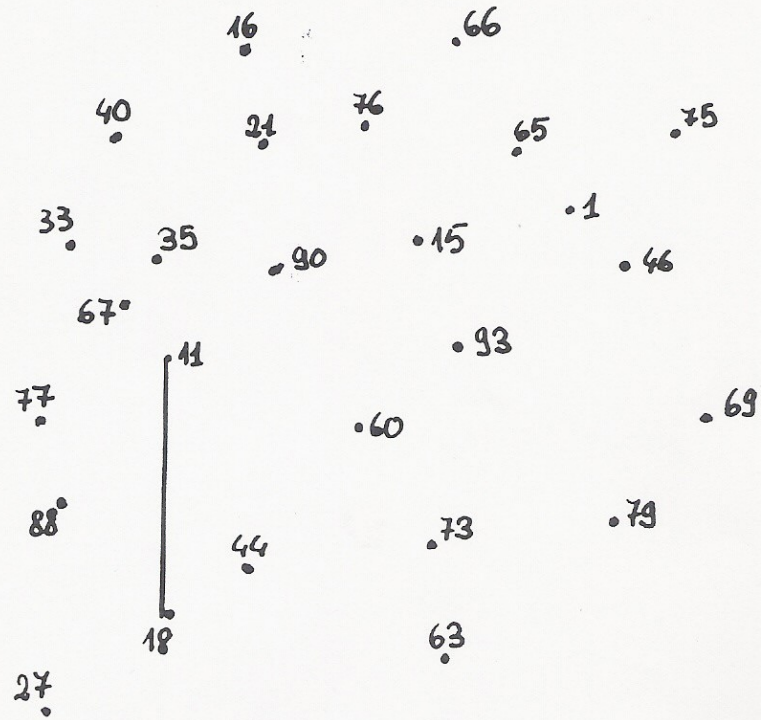 16
66
40
21
76
65
75
33
35
90
15
1
46
67
11
93
77
60
69
88
44
73
79
18
63
27